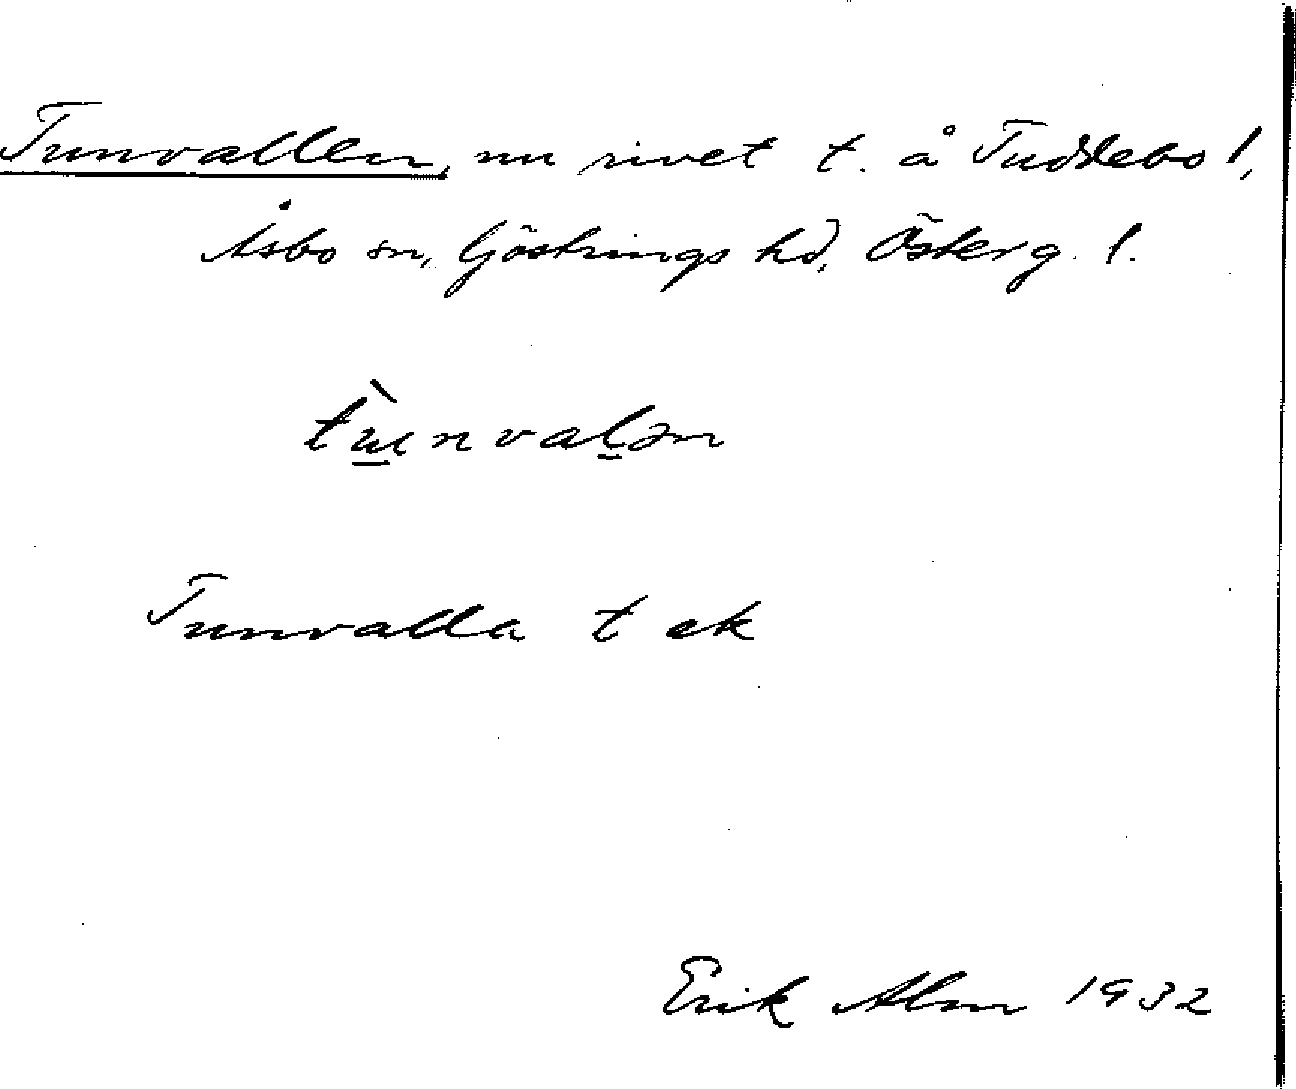 Tunvallen, nu rivet t. å Tuddebo 1,
Åsbo sn, Göstrings hd, Österg. l.
tu̲nval̲ən
Tunvalla t ek
Erik Alm 1932